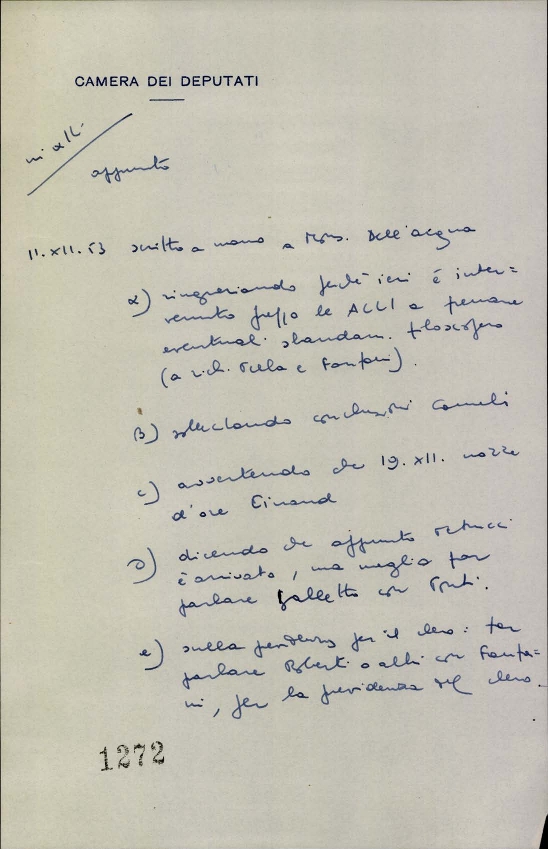 CAMERA DEI DEPUTATI
appunto
11.XII.53 scritto a mano a Mons. Dell'acqua
a) ringraziando perché ieri è inter=
venuto presso le ACLI a frenare
eventuali sbandam. filo
(a rich. e Fanfani).
B) sollecitando conclusioni
c) avvertendo che 19.XII. nozze
d'oro Einaud
D) dicendo che appunto
è arrivato, ma meglio far
parlare Galletto con
e) sulla per il clero: far
parlare Roberti o altri con Fanfa=
ni, per la previdenza del clero.
1272